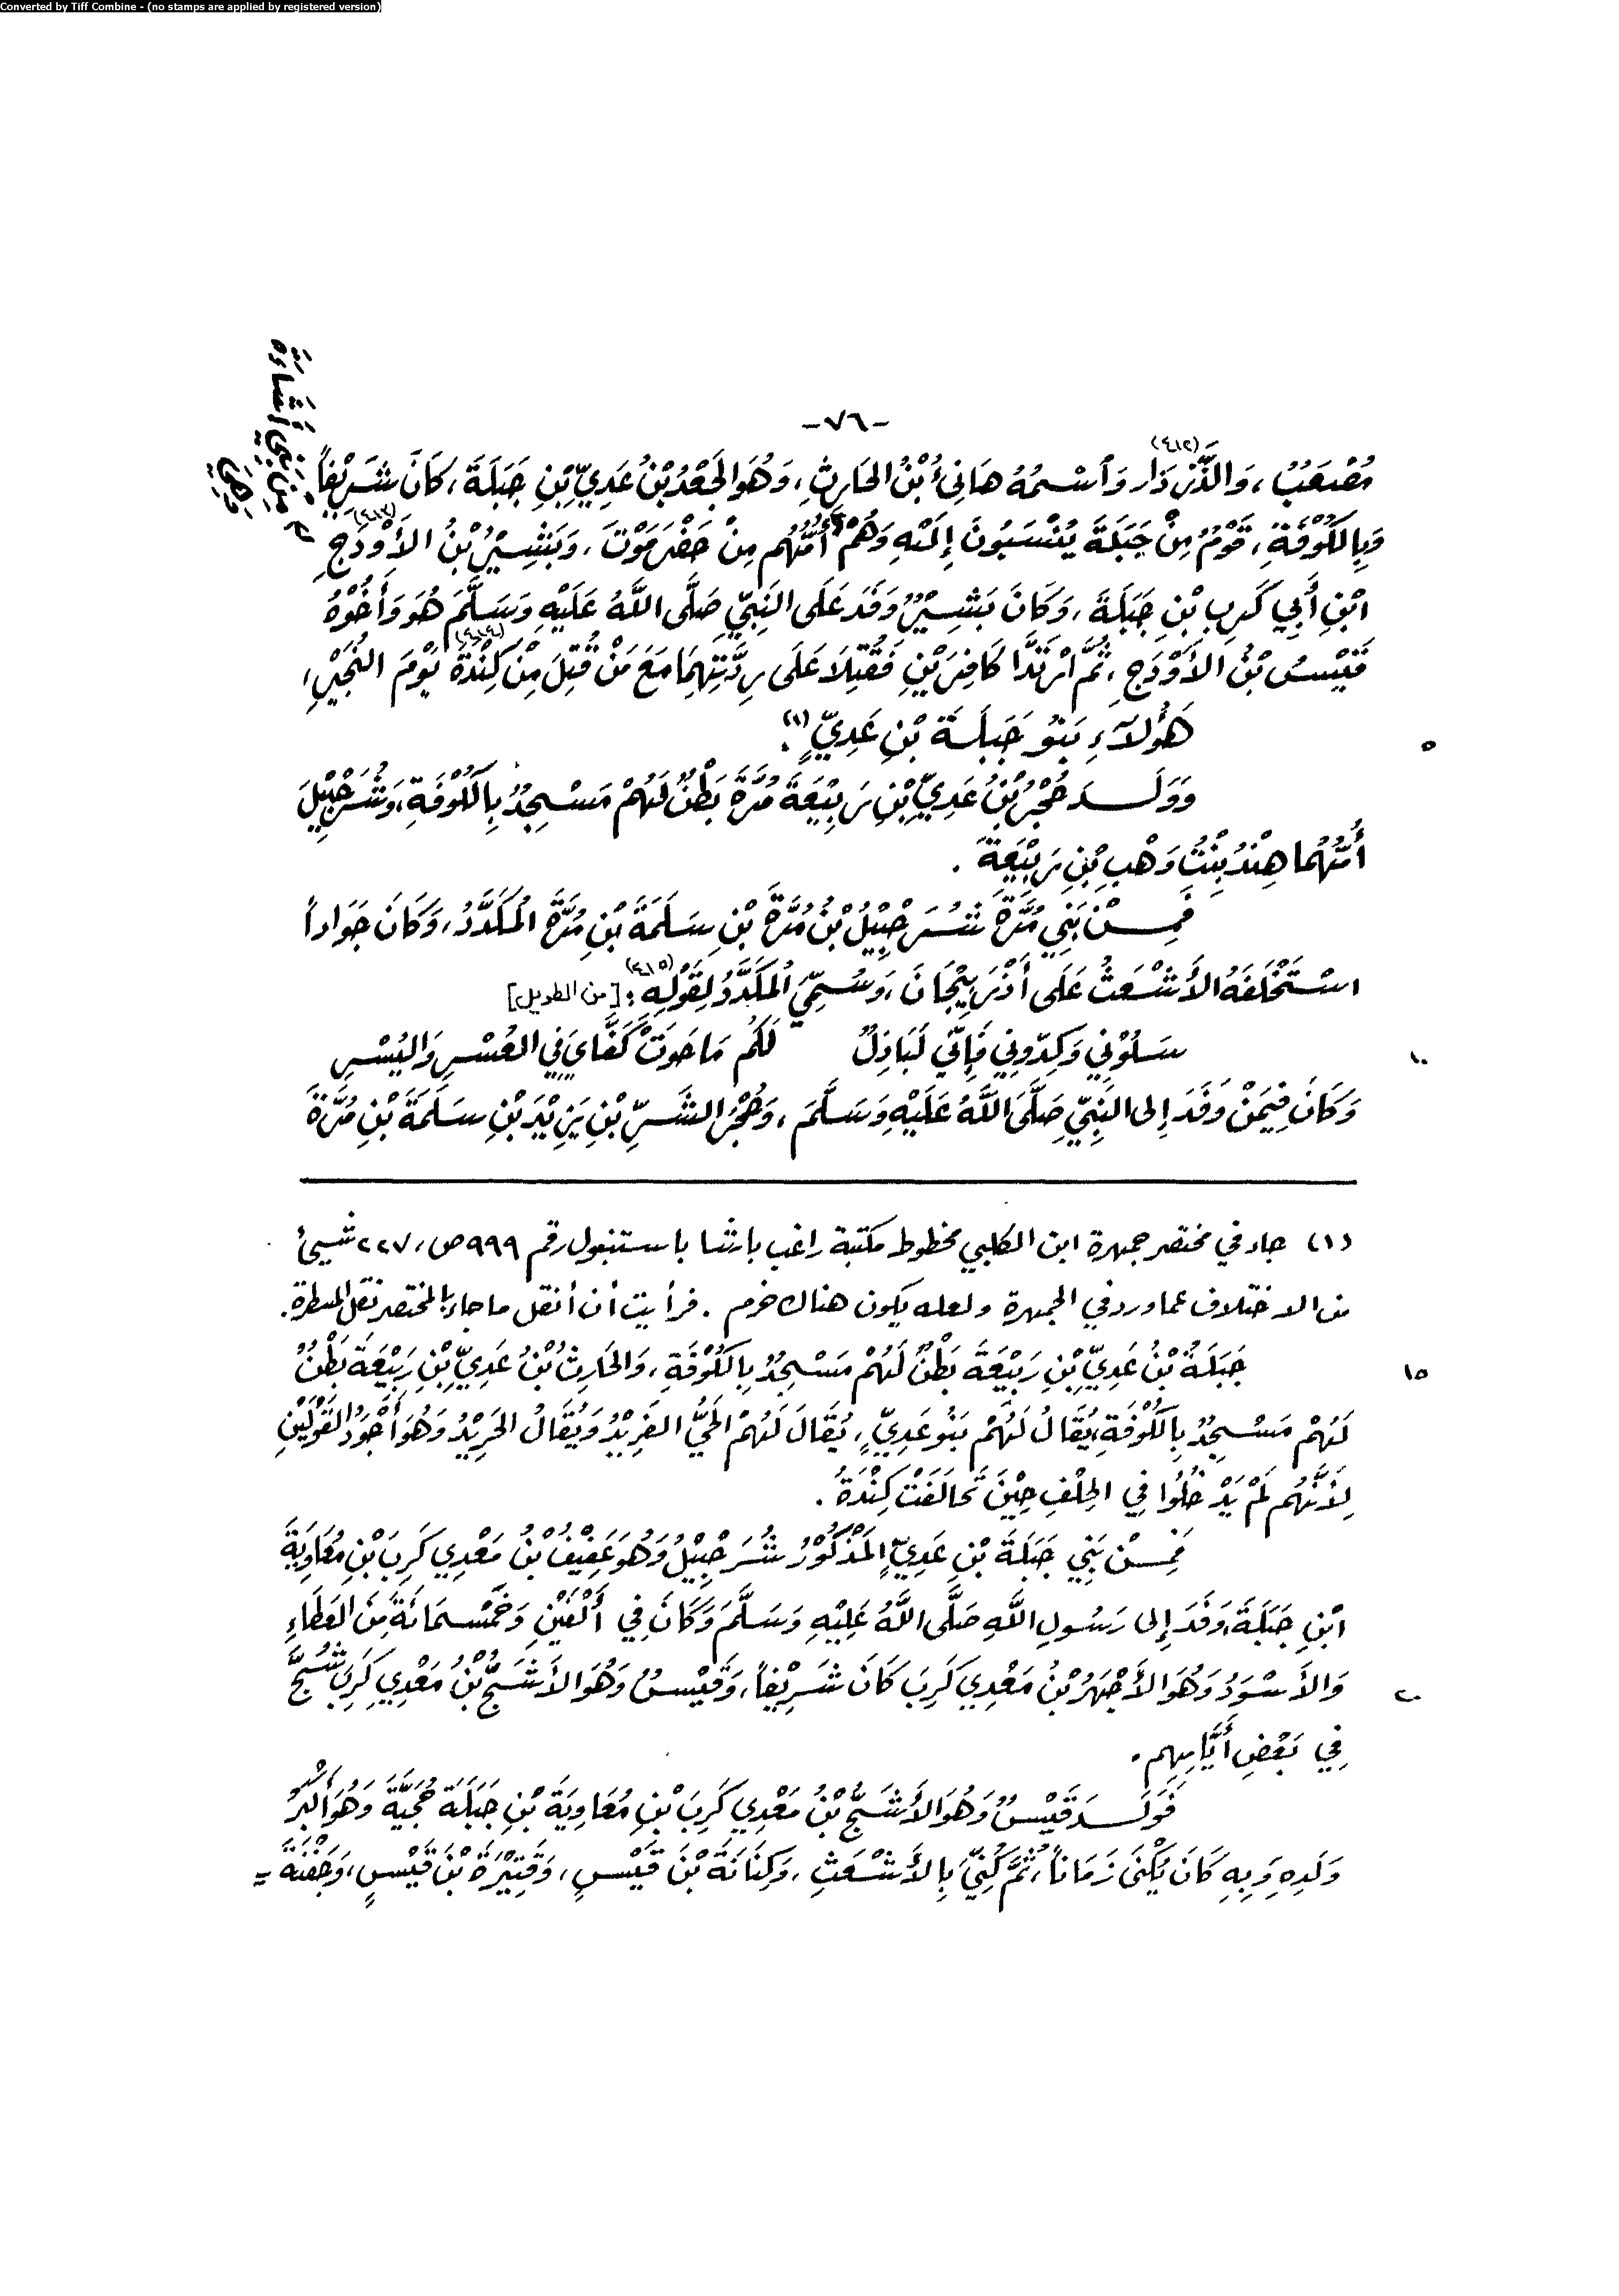 Converted by Tiff Combine - (no stamps are applied by registered version)
-٧٦-
مُصْعَبٌ، وَالذَّرْدَار (٤١٢) وَاسْمُهُ هَانِئُ بْنُ الحَارِثِ، وَهُوَ الجَعْدُ بْنُ عَدِيِّ بْنِ جَبَلَةَ، كَانَ شَرِيْفاً
وَبِالكُوْفَةِ، قَوْمٌ مِنْ جَبَلَةَ يُنْسَبُونَ إِلَيْهِ وَهُمْ أُمُّهُم مِنْ حَضْرَمَوْتَ، وَبَشِيْرُ بْنُ الأَوْدَجِ (٤١٣)
مِنْ بَنِي أُشَاءَةَ
وَهِيَ
ابْنِ أَبِي كَرِبِ بْنِ جَبَلَةَ، وَكَانَ بَشِيْرٌ وَفَدَ عَلَى النَبِيِّ صَلَّى اللَّهُ عَلَيْهِ وَسَلَّمَ هُوَ وَأَخُوْهُ
قَيْسُ بْنُ الأَوْدَجِ، ثُمَّ ارْتَدَّا كَافِرَيْنِ فَقُتِلَا عَلَى رِدَّتِهِمَا مَعَ مَنْ قُتِلَ مِنْ كِنْدَةَ (٤١٤) يَوْمَ النُجَيْرِ،
هَؤُلَاءِ بَنُو جَبَلَةَ بْنِ عَدِيٍّ (١).
٥
وَوَلَدَ حُجْرُ بْنُ عَدِيِّ بْنِ رَبِيْعَةَ مُرَّةَ بَطْنٌ لَهُمْ مَسْجِدٌ بِالكُوْفَةِ، وَشُرَحْبِيْلَ
أُمُّهُمَا هِنْدُ بِنْتُ وَهْبِ بْنِ رَبِيْعَةَ.
فَمِنْ بَنِي مُرَّةَ شُرَحْبِيْلُ بْنُ مُرَّةَ بْنِ سَلَمَةَ بْنِ مُرَّةَ المُكَدَّدُ، وَكَانَ جَوَاداً
اسْتَخْلَفَهُ الأَشْعَثُ عَلَى أَذْرَبِيْجَانَ، وَسُمِّيَ المُكَدَّدُ لِقَوْلِهِ (٤١٥): [من الطويل]
سَلُوْنِي وَكِدُّونِي فَإِنِّي لَبَاذِلٌ لَكُم مَا حَوَتْ كَفَّايَ فِي العُسْرِ وَاليُسْرِ
١٠
وَكَانَ فِيمَنْ وَفَدَ إِلى النَبِيِّ صَلَّى اللَّهُ عَلَيْهِ وَسَلَّمَ، وَحُجْرُ الشَّرِّ بْنِ يَزِيْدَ بْنِ سَلَمَةَ بْنِ مُرَّةَ
(١) جاء في مختصر جمهرة ابن الكلبي مخطوط مكتبة راغب باشا باستنبول رقم ٩٩٩ ص، ٢٢٧ شيئ
من الاختلاف عما ورد في الجمهرة ولعله يكون هناك خرم. فرأيت أن أنقل ما جاء بالمختصر نقل المسطرة.
جَبَلَةُ بْنُ عَدِيِّ بْنِ رَبِيْعَةَ بَطْنٌ لَهُمْ مَسْجِدٌ بِالكُوْفَةِ، وَالحَارِثُ بْنُ عَدِيِّ بْنِ رَبِيْعَةَ بَطْنٌ
١٥
لَهُمْ مَسْجِدٌ بِالكُوْفَةِ، يُقَالُ لَهُمْ بَنُو عَدِيٍّ، يُقَالُ لَهُمْ الحَيُّ الفَرِيْدُ وَيُقَالُ الحَرِيْدُ وَهُوَ أَجْوَدُ القَوْلَيْنِ
لِأَنَّهُم لَمْ يَدْخُلُوا فِي الحِلْفِ حِيْنَ تَحَالَفَتْ كِنْدَةُ.
فَمِنْ بَنِي جَبَلَةَ بْنِ عَدِيٍّ المَذْكُوْرُ شُرَحْبِيْلُ وَهُوَ عَفِيْفُ بْنُ مَعْدِي كَرِبَ بْنِ مُعَاوِيَةَ
ابْنِ جَبَلَةَ، وَفَدَ إِلى رَسُولِ اللَّهِ صَلَّى اللَّهُ عَلَيْهِ وَسَلَّمَ وَكَانَ فِي أَلْفَيْنِ وَخَمْسمَائَةٍ مِنَ العَطَاءِ
وَالأَسْوَدُ وَهُوَ الأَجْهَرُ بْنُ مَعْدِي كَرِبَ كَانَ شَرِيْفاً، وَقَيْسُ وَهُوَ الأَشَجُّ بْنُ مَعْدِي كَرِبَ شُجَّ
٢٠
فِي بَعْضِ أَيَّامِهِم.
فَوَلَدَ قَيْسٌ وَهُوَ الأَشَجُّ بْنُ مَعْدِي كَرِبَ بْنِ مُعَاوِيَةَ بْنِ جَبَلَةَ حُجَيَّةَ وَهُوَ أَكْبَرُ
وَلَدِهِ وَبِهِ كَانَ يُكْنَى زَمَاناً، ثُمَّ كُنِّيَ بِالأَشْعَثِ، وَكِنَانَةَ بْنَ قَيْسٍ، وَقَتِيْرَةَ بْنَ قَيْسٍ، وَجَفْنَةَ =